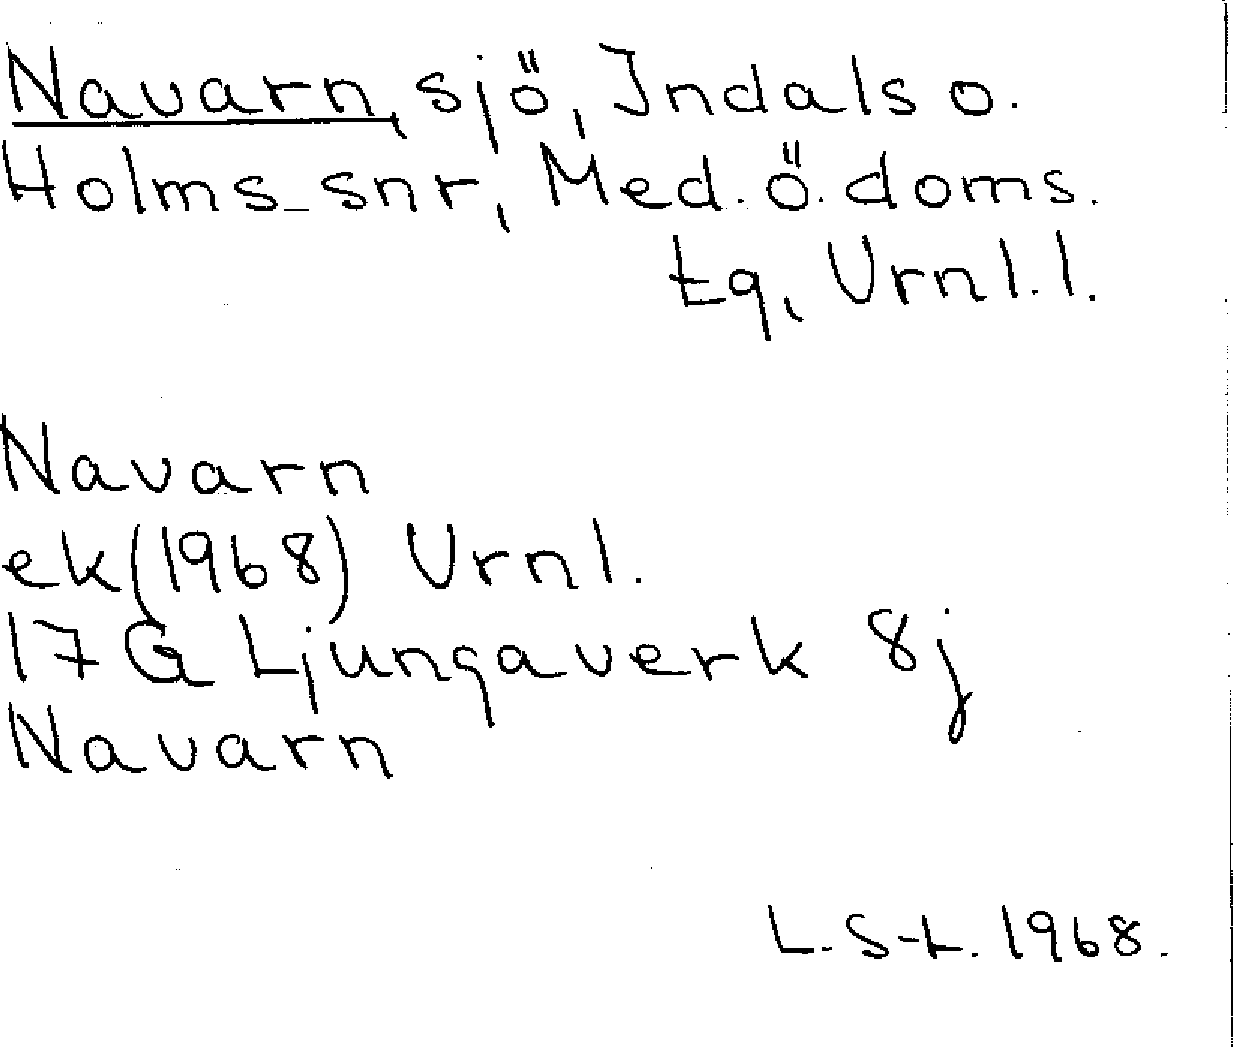 Navarn, sjö, Indals o.
Holms snr, Med. ö. doms.
tg, Vrnl. l.
Navarn
ek (1968) Vrnl.
17 G Ljungaverk 8j
Navarn
L. S-L. 1968.